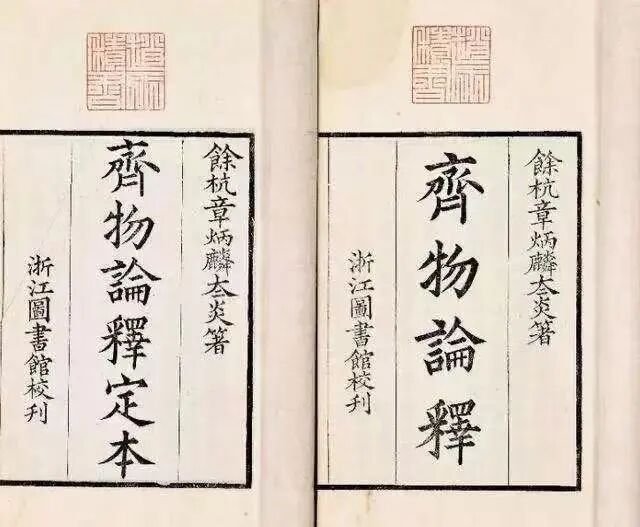 餘杭章炳麟夳炎箸
齊物論釋
浙江圖書館校刊
餘杭章炳麟夳炎箸
齊物論釋定本
浙江圖書館校刊